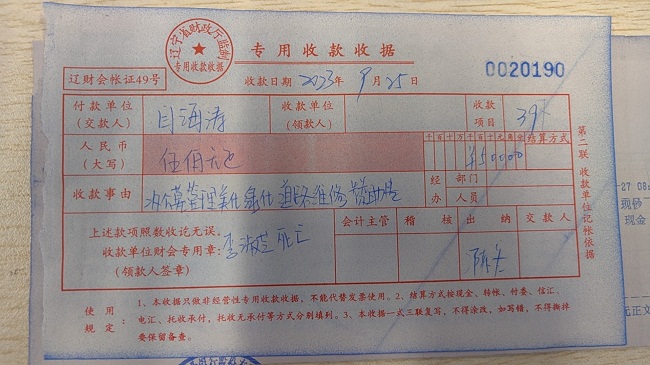 辽宁省财政厅监制
专用收款收据
专用收款收据
辽财会帐证49号
收款日期 2023年 9月25日
0020190
付款单位
(交款人)
闫海涛
收款单位
(领款人)
收款
项目
人民币
(大写)
伍佰元
千百十万千百十元角分
结算方式
¥50000
收款事由
管理美化绿化道路维修
经
办
部门
人员
上述款项照数收讫无误。
收款单位财会专用章:
(领款人签章)
李淑芝 死亡
会计主管
稽核
出纳
交款人
第二联 收款单位记帐依据
使用
规定:
1、本收据只做非经营性专用收款收据,不能代替发票使用。2、结算方式按现金、转帐、付委、信汇、
电汇、托收承付,托收无承付等方式分别填列。3、本收据一式三联复写,不得涂改,如写错,不得撕掉
要保留备查。
现钞
现金